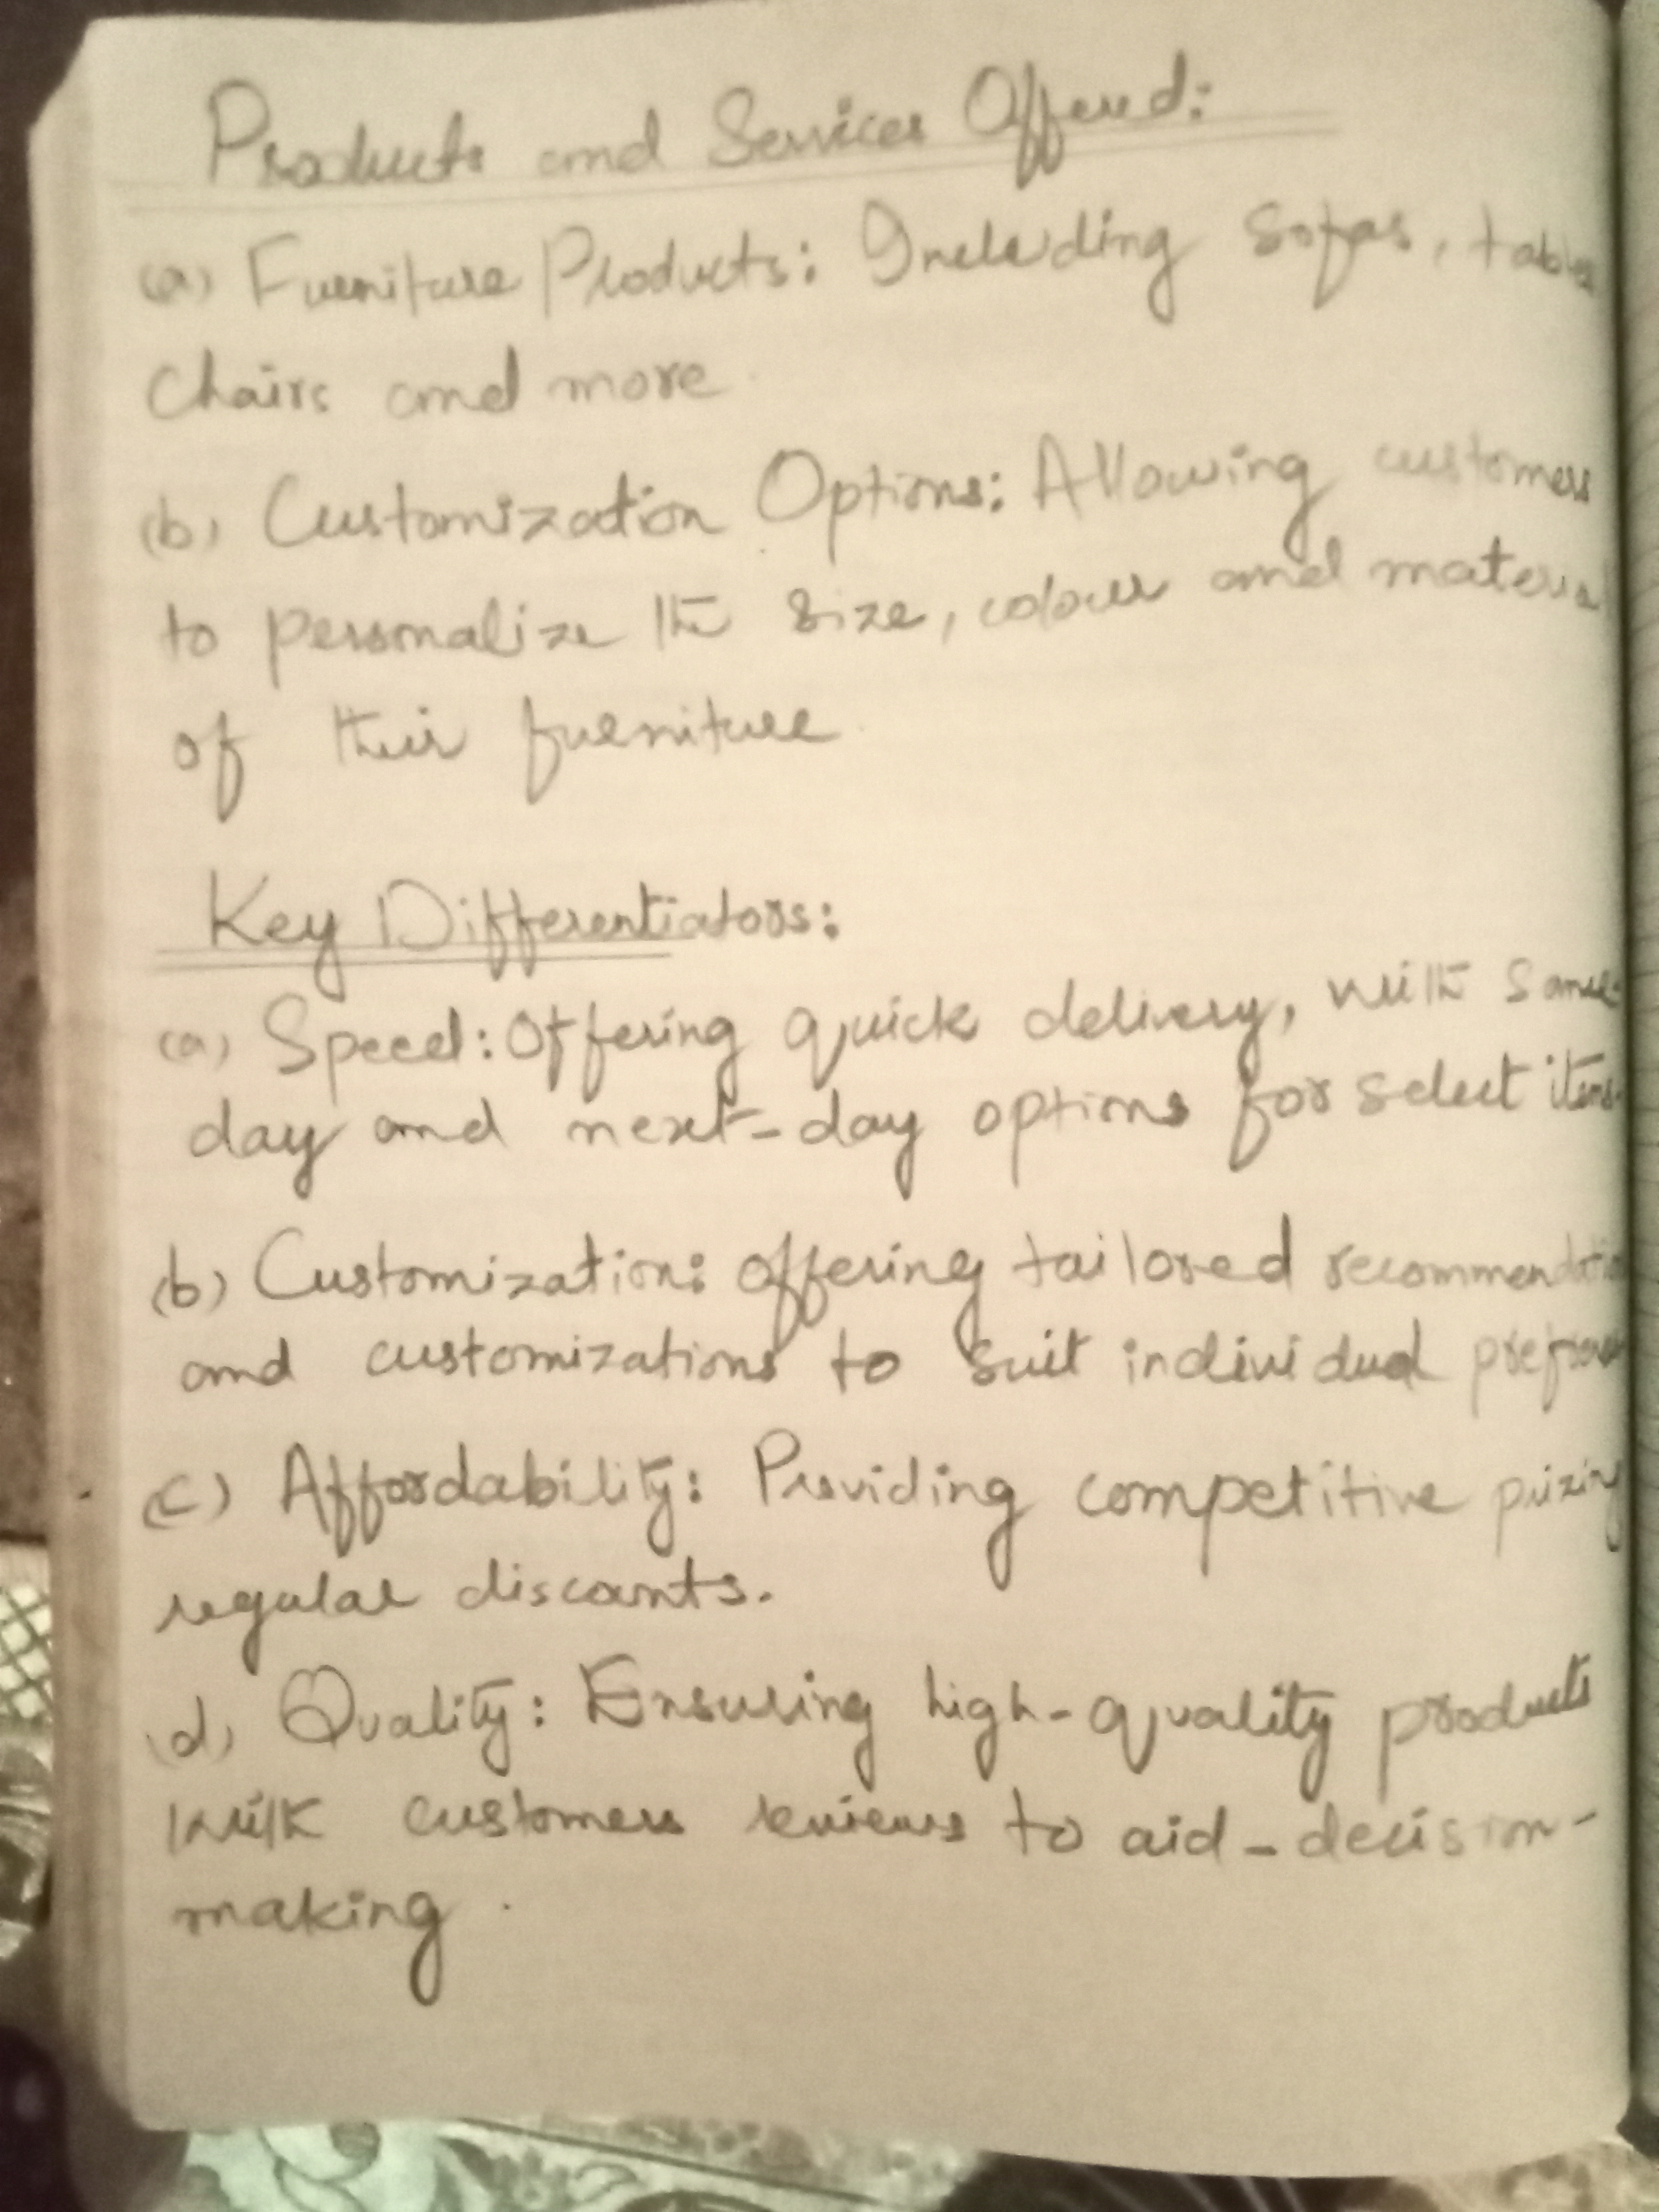 Products and Services Offered:
(a) Furniture Products: Including Sofas, tables
Chairs and more
(b) Customization Options: Allowing customers
to personalize the size, colour and material
of their furniture
Key Differentiators:
(a) Speed: Offering quick delivery, with Same-
day and next-day options for select items.
(b) Customization: offering tailored
and customizations to suit individual
(c) Affordability: Providing competitive prizing
regular discounts.
(d) Quality: Ensuring high-quality products
with customers reviews to aid-decision-
making.